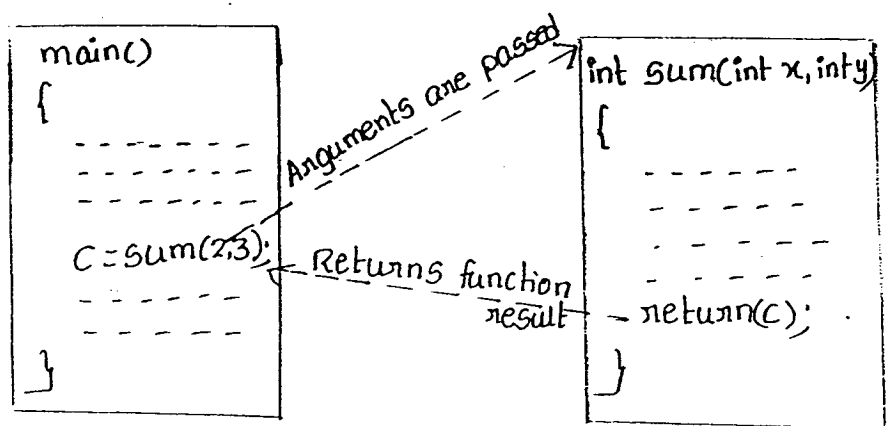 main()
{
- - - - - - -
- - - - - - -
- - - - - - -
C=sum(2,3);
- - - - - -
- - - - - -
}
Arguments are passed
Returns function
result
int sum(int x, int y)
{
- - - - - -
- - - - -
- - - - -
- - - - -
return(C);
}